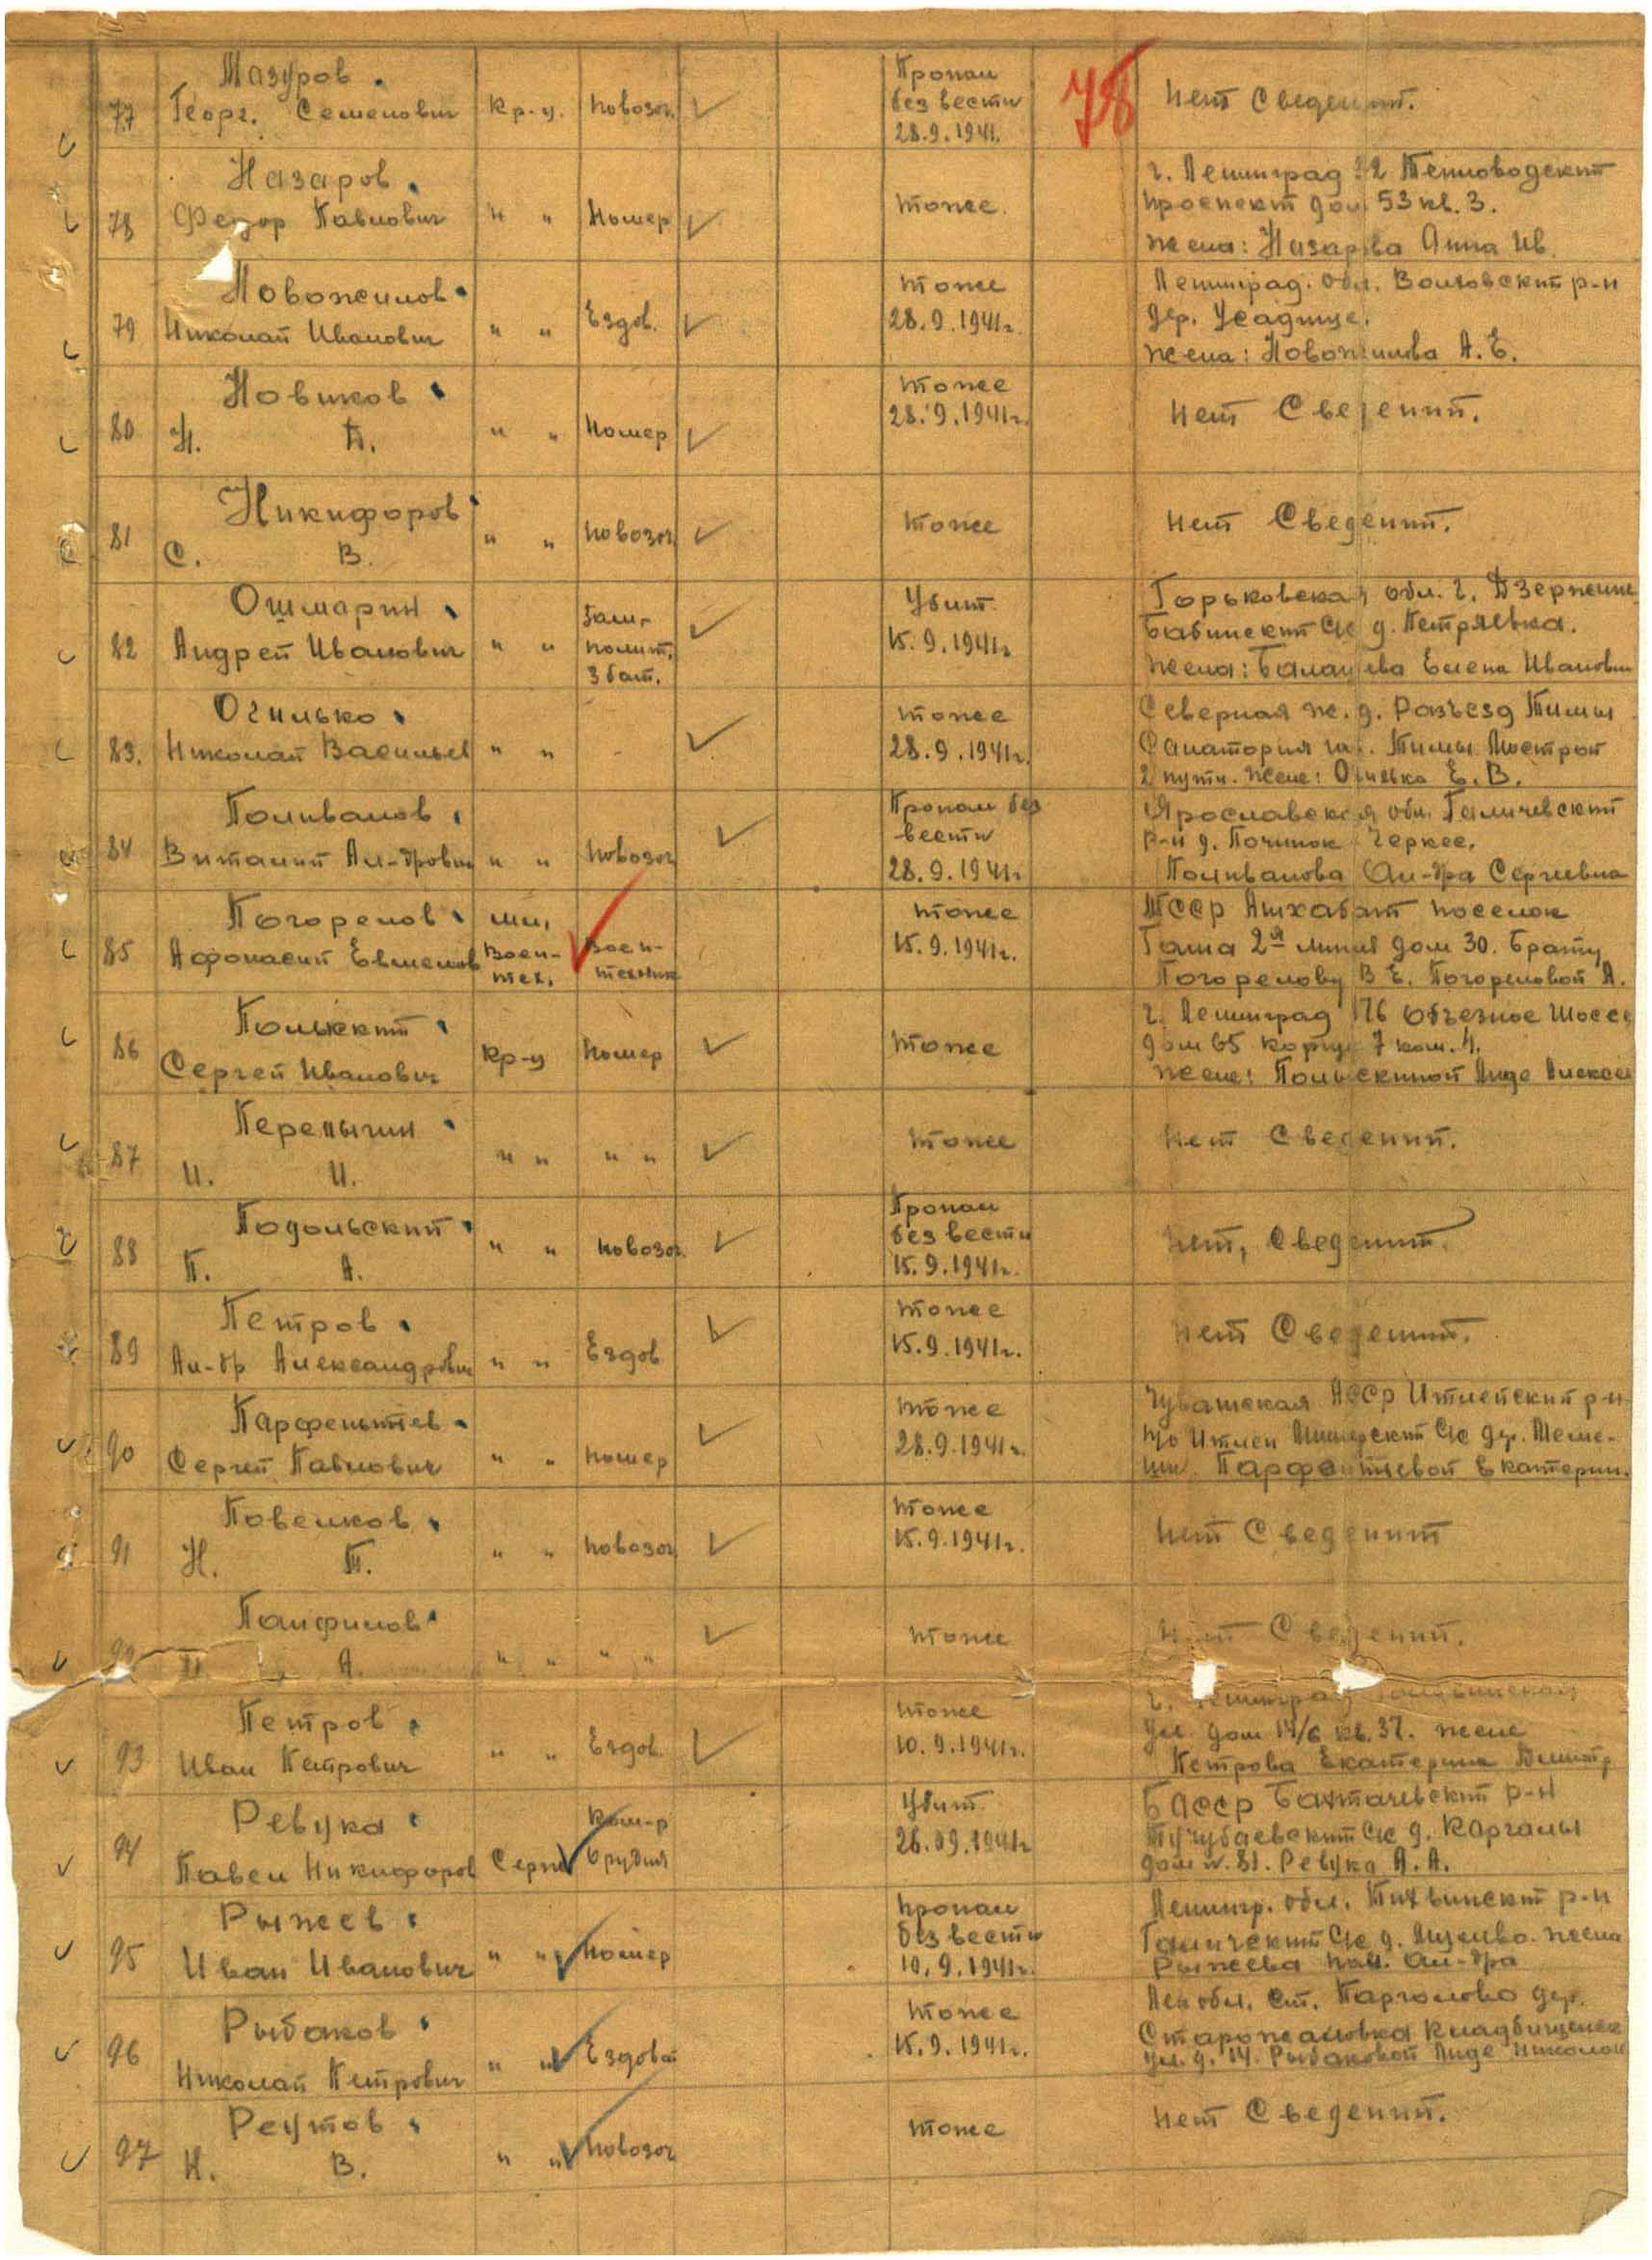 Мазуров
77 Георг. Семенович Кр-ц. повозоч.
Пропал
без вести
28.9.1941.
78
нет Сведений.
Назаров
78 Федор Павлович " " Номер тоже.
г. Ленинград 22
проспект дом 53 кв. 3.
жена: Назарова Анна Ив.
Новожилов
79 Николай Иванович " " Ездов.
тоже
28.9.1941г.
Ленинград. обл. Волховский р-н
дер. Усадище.
жена: Новожилова А. Е.
Новиков
80 Н. П. " " Номер
тоже
28.9.1941г.
нет Сведений.
Никифоров
81 С. В. " " повозоч тоже нет Сведений.
Ошмарин
82 Андрей Иванович " "
Зам.
полит.
3 бат.
Убит
15.9.1941г.
Горьковская обл. г. Дзержинс
Бабинский С/с д. Петряевка.
жена: Елена Иванович
Огилько
83. Николай Васильев " "
тоже
28.9.1941г.
Северная ж. д. Разъезд
2 путь. жене: Огилько Е. В.
Поливанов
84 Виталий Ал-дрович " " повозоч
Пропал без
вести
28.9.1941г
Ярославская обл. Галичевский
р-н д. Починок Черкес.
Поливанова Ал-дра Сергиевна
Погорелов
85 Афонасий Евменов
мл.
Воен-
тех.
Воен-
техник
тоже
15.9.1941г.
ТССР Ашхабат поселок
2я линия дом 30. Брату
Погорелову В Е. Погореловой А.
Польский
86 Сергей Иванович Кр-ц Номер тоже
г. Ленинград 176 Объезное Шоссе
дом 65 корпус 7 ком. 4.
жене: Лиде Алексее
Перепычин
87 И. И. " " " " тоже нет Сведений.
Подольский
88 П. А. " " повозоч.
Пропал
без вести
15.9.1941г.
нет, Сведений.
Петров
89 Ал-др Александрович " " Ездов
тоже
15.9.1941г.
нет Сведений.
Парфентьев
90 Сергей Павлович " " номер
тоже
28.9.1941г.
Чувашская АССР Итлейский р-н
п/о Итлеи С/с дер.
Парфентьевой Екатерин.
Повелков
91 Н. П. " " повозоч
тоже
15.9.1941г.
нет Сведений
Панфилов
П. А. " " " " тоже нет Сведений.
Петров
93 Иван Петрович " " Ездов.
тоже
10.9.1941г.
г. Ленинград
ул. дом 14/6 кв. 37. жене
Петрова Екатерине Дмитр
Ревука
94 Павел Никифоров Серж
Ком-р
Орудия
Убит
26.09.1941г
БАССР р-н
С/с д. Каргалы
дом N. 81. Ревука А. А.
Рыжев
95 Иван Иванович " " Номер
пропал
без вести
10.9.1941г.
Ленингр. обл. Тихвинский р-н
С/с д. жена
Рыжева Ал-дра
Рыбаков
96 Николай Петрович " " Ездовой
тоже
15.9.1941г.
Лен обл. ст. Парголово дер.
Старожиловка Кладбищенск
ул. д. 14. Рыбаковой Лиде Николае
Реутов
97 Н. В. " " повозоч тоже нет Сведений.